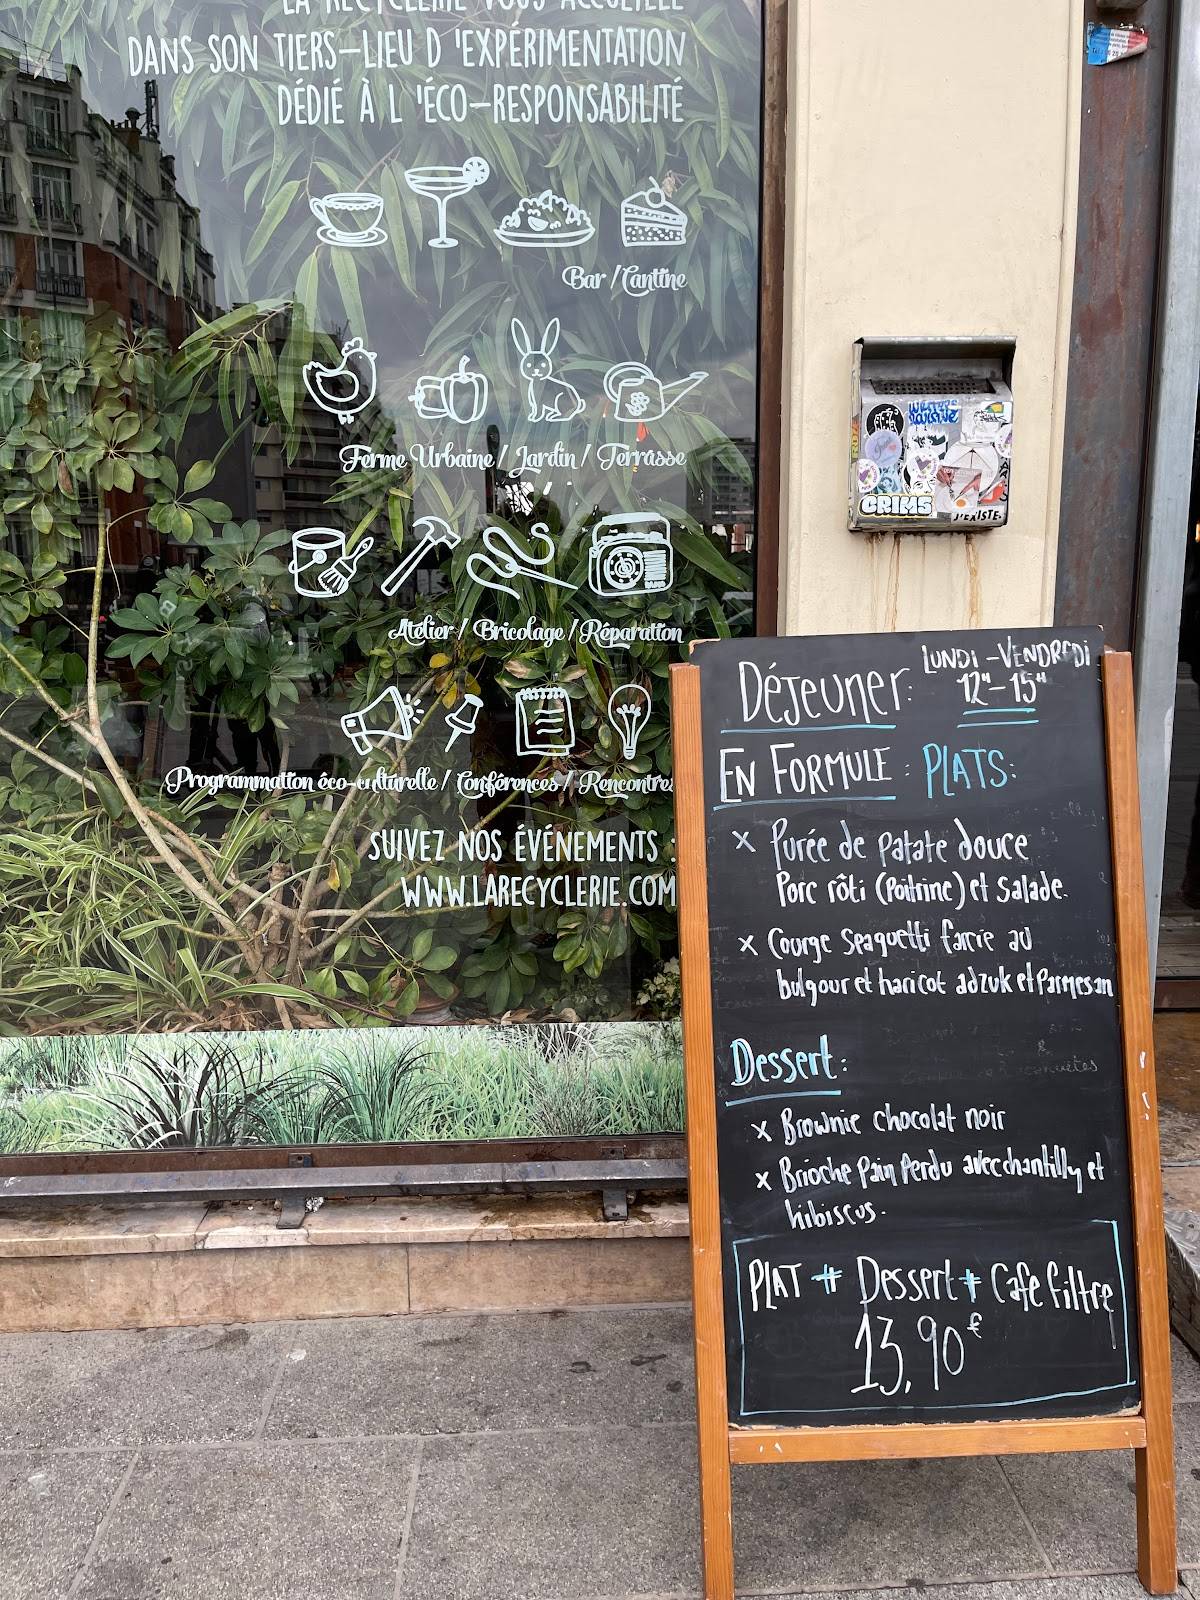 LA RECYCLERIE VOUS ACCUEILLE
DANS SON TIERS-LIEU D'EXPÉRIMENTATION
DÉDIÉ À L'ÉCO-RESPONSABILITÉ
Bar / Cantine
Ferme Urbaine / Jardin / Terrasse
Atelier / Bricolage / Réparation
Programmation éco-culturelle / Conférences / Rencontres
SUIVEZ NOS ÉVÉNEMENTS :
WWW.LARECYCLERIE.COM
GRIMS
J'EXISTE
Déjeuner: LUNDI-VENDREDI
12H-15H
EN FORMULE : PLATS:
x Purée de patate douce
Porc rôti (Poitrine) et Salade.
x Courge Spaguetti farcie au
bulgour et haricot adzuk et Parmesan
Dessert:
x Brownie chocolat noir
x Brioche Pain Perdu avec chantilly et
hibiscus.
PLAT + Dessert + Cafe filtre
13,90€